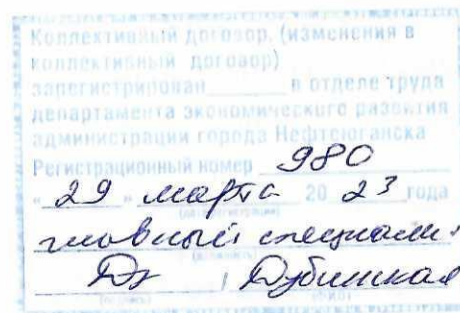 Коллективный договор, (изменения в
коллективный договор)
зарегистрирован______ в отделе труда
департамента экономического развития
администрации города Нефтеюганска
Регистрационный номер 980
"29" марта 20 23 года
(дата регистрации)
главный специалис
(должность)
/ Дубинская
(подпись) (ФИО)